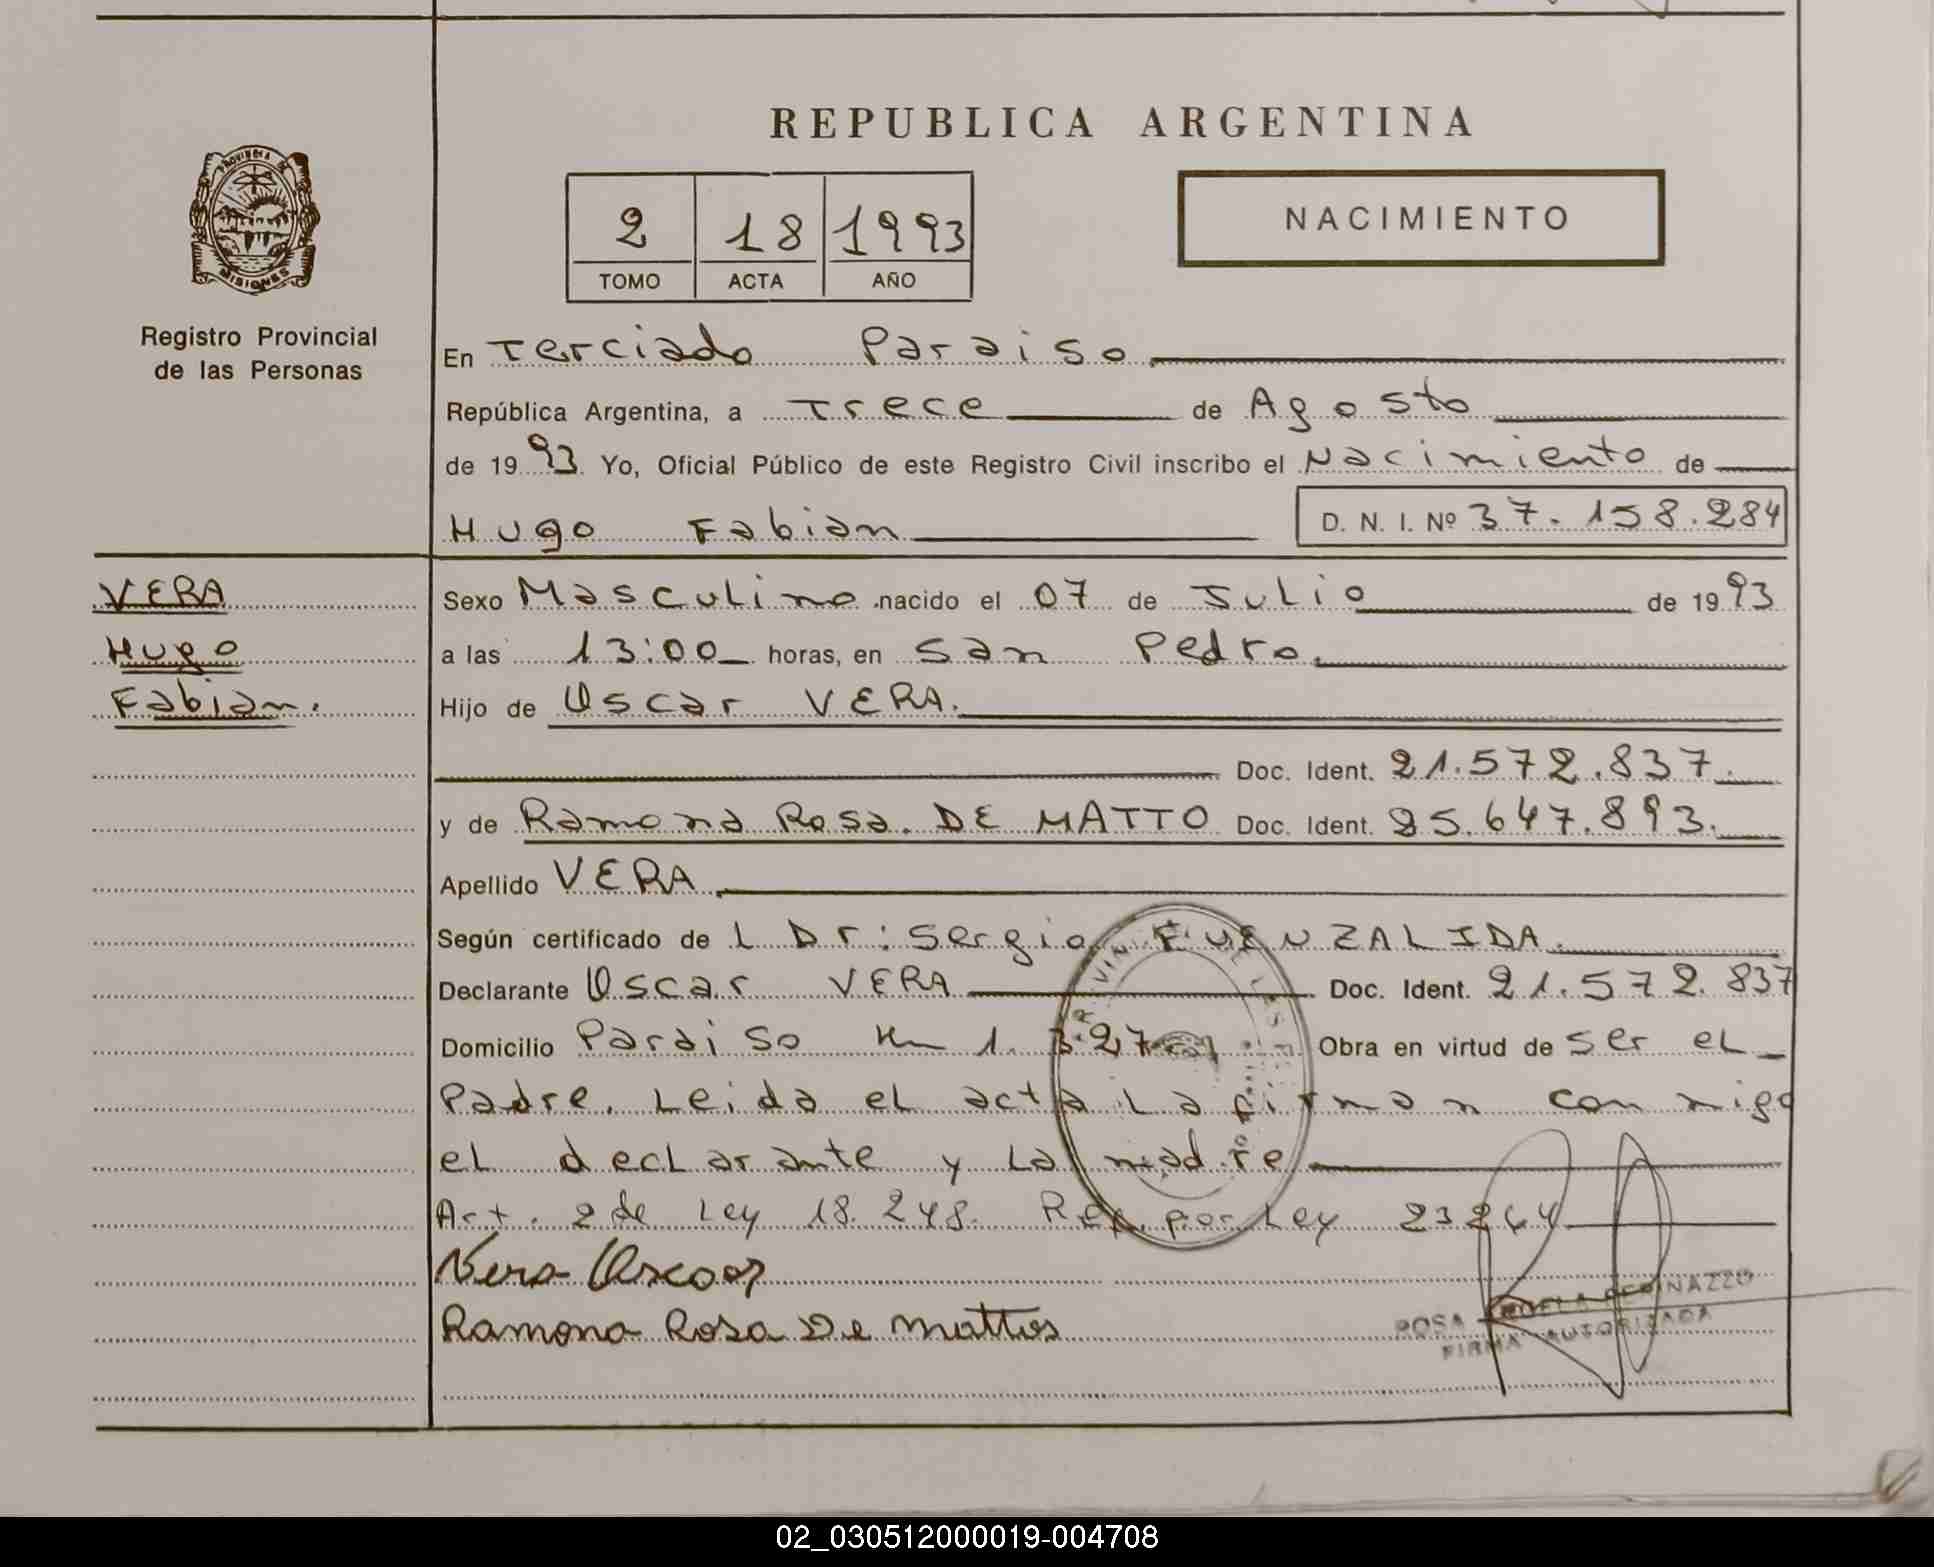 REPUBLICA ARGENTINA
PROVINCIA DE
MISIONES
Registro Provincial
de las Personas
2 18 1993
TOMO ACTA AÑO
NACIMIENTO
En Terciado Paraiso
República Argentina, a Trece de Agosto
de 1993 Yo, Oficial Público de este Registro Civil inscribo el Nacimiento de
Hugo Fabian D. N. I. Nº 37.158.284
VERA
Hugo
Fabian.
Sexo Masculino nacido el 07 de Julio de 1993
a las 13:00 horas, en San Pedro.
Hijo de Oscar VERA.
Doc. Ident. 21.572.837.
y de Ramona Rosa. DE MATTO Doc. Ident. 25.647.893.
Apellido VERA
Según certificado de L Dr: Sergio FUENZALIDA.
Declarante Oscar VERA Doc. Ident. 21.572.837
Domicilio Paraiso Km 1.327 Obra en virtud de ser el
Padre. Leida el acta La firman conmigo
el declarante y La madre
Art. 2 de Ley 18.248. Ref. por Ley 23264
Vera Oscar
Ramona Rosa De Mattos
ROSA
FIRMA AUTORIZADA
02_030512000019-004708